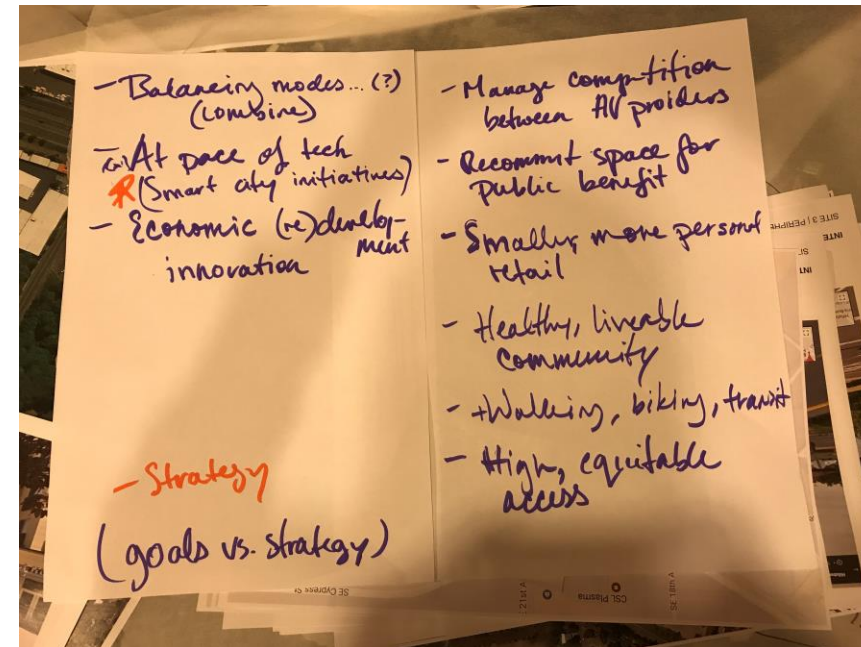 - Balancing modes... (?)
(combine)
- At pace of tech
(Smart city initiatives)
- Economic (re)develop-
ment
innovation
- Strategy
(goals vs. strategy)
- Manage competition
between AV proiders
- Recommit space for
public benefit
- Smaller, more personal
retail
- Healthy, liveable
community
- +Walking, biking, transit
- High, equitable
access
SITE 3 | PERIPH
INTE
INT
SE Cypress St
21st A
CSL Plasma
SE 18th A